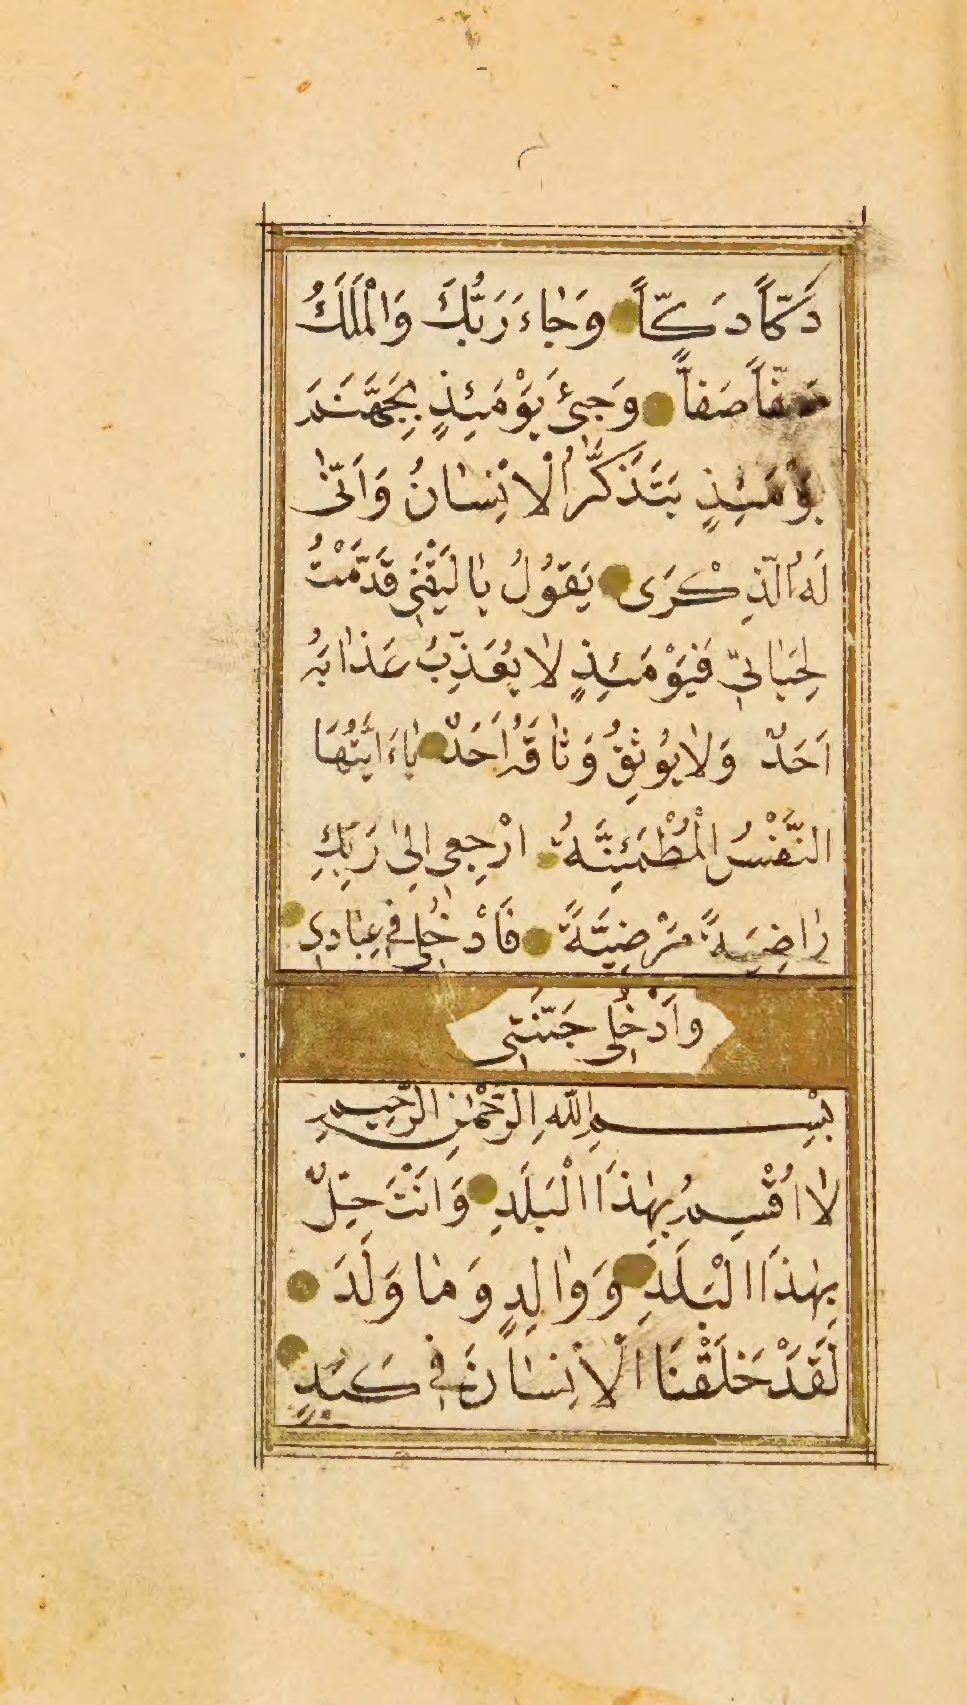 دَكّاً دَكّاً وَجٰاءَ رَبُّكَ وَالْمَلَكُ
صَفّاً صَفاًّ وَجىءَ يَوْمَئِذٍ بِجَهَنَّمَ
يَوْمَئِذٍ يَتَذَكَّرُ الْاِنْسٰانُ وَاَنّىٰ
لَهُ الذِّكْرَى يَقوُلُ يٰا لَيْتَنى قَدَّمْتُ
لِحَيٰاتىّ فَيَوْمَئِذٍ لٰا يُعَذِّبُ عَذٰابَهُ
اَحَدٌ وَلٰا يوُثِقُ وَثٰاقَهُ اَحَدٌ يٰاءَ ايَّتُهَا
النَّفْسُ الْمُطْمَئِنَّةُ ارْجِعى اِلىٰ رَبِّكِ
رٰاضِيَةً مَرْضِيَّةً فَادْخُلى فى عِبٰادى
وَادْخُلى جَنَّتى
بِسْمِ اللّٰهِ الرَّحْمٰنِ الرَّحيمِ
لٰا اُقْسِمُ بِهٰذَا الْبَلَدِ وَاَنْتَ حِلٌّ
بِهٰذَا الْبَلَدِ وَوٰالِدٍ وَمٰا وَلَدَ
لَقَدْ خَلَقْنَا الْاِنْسٰانَ فى كَبَدٍ